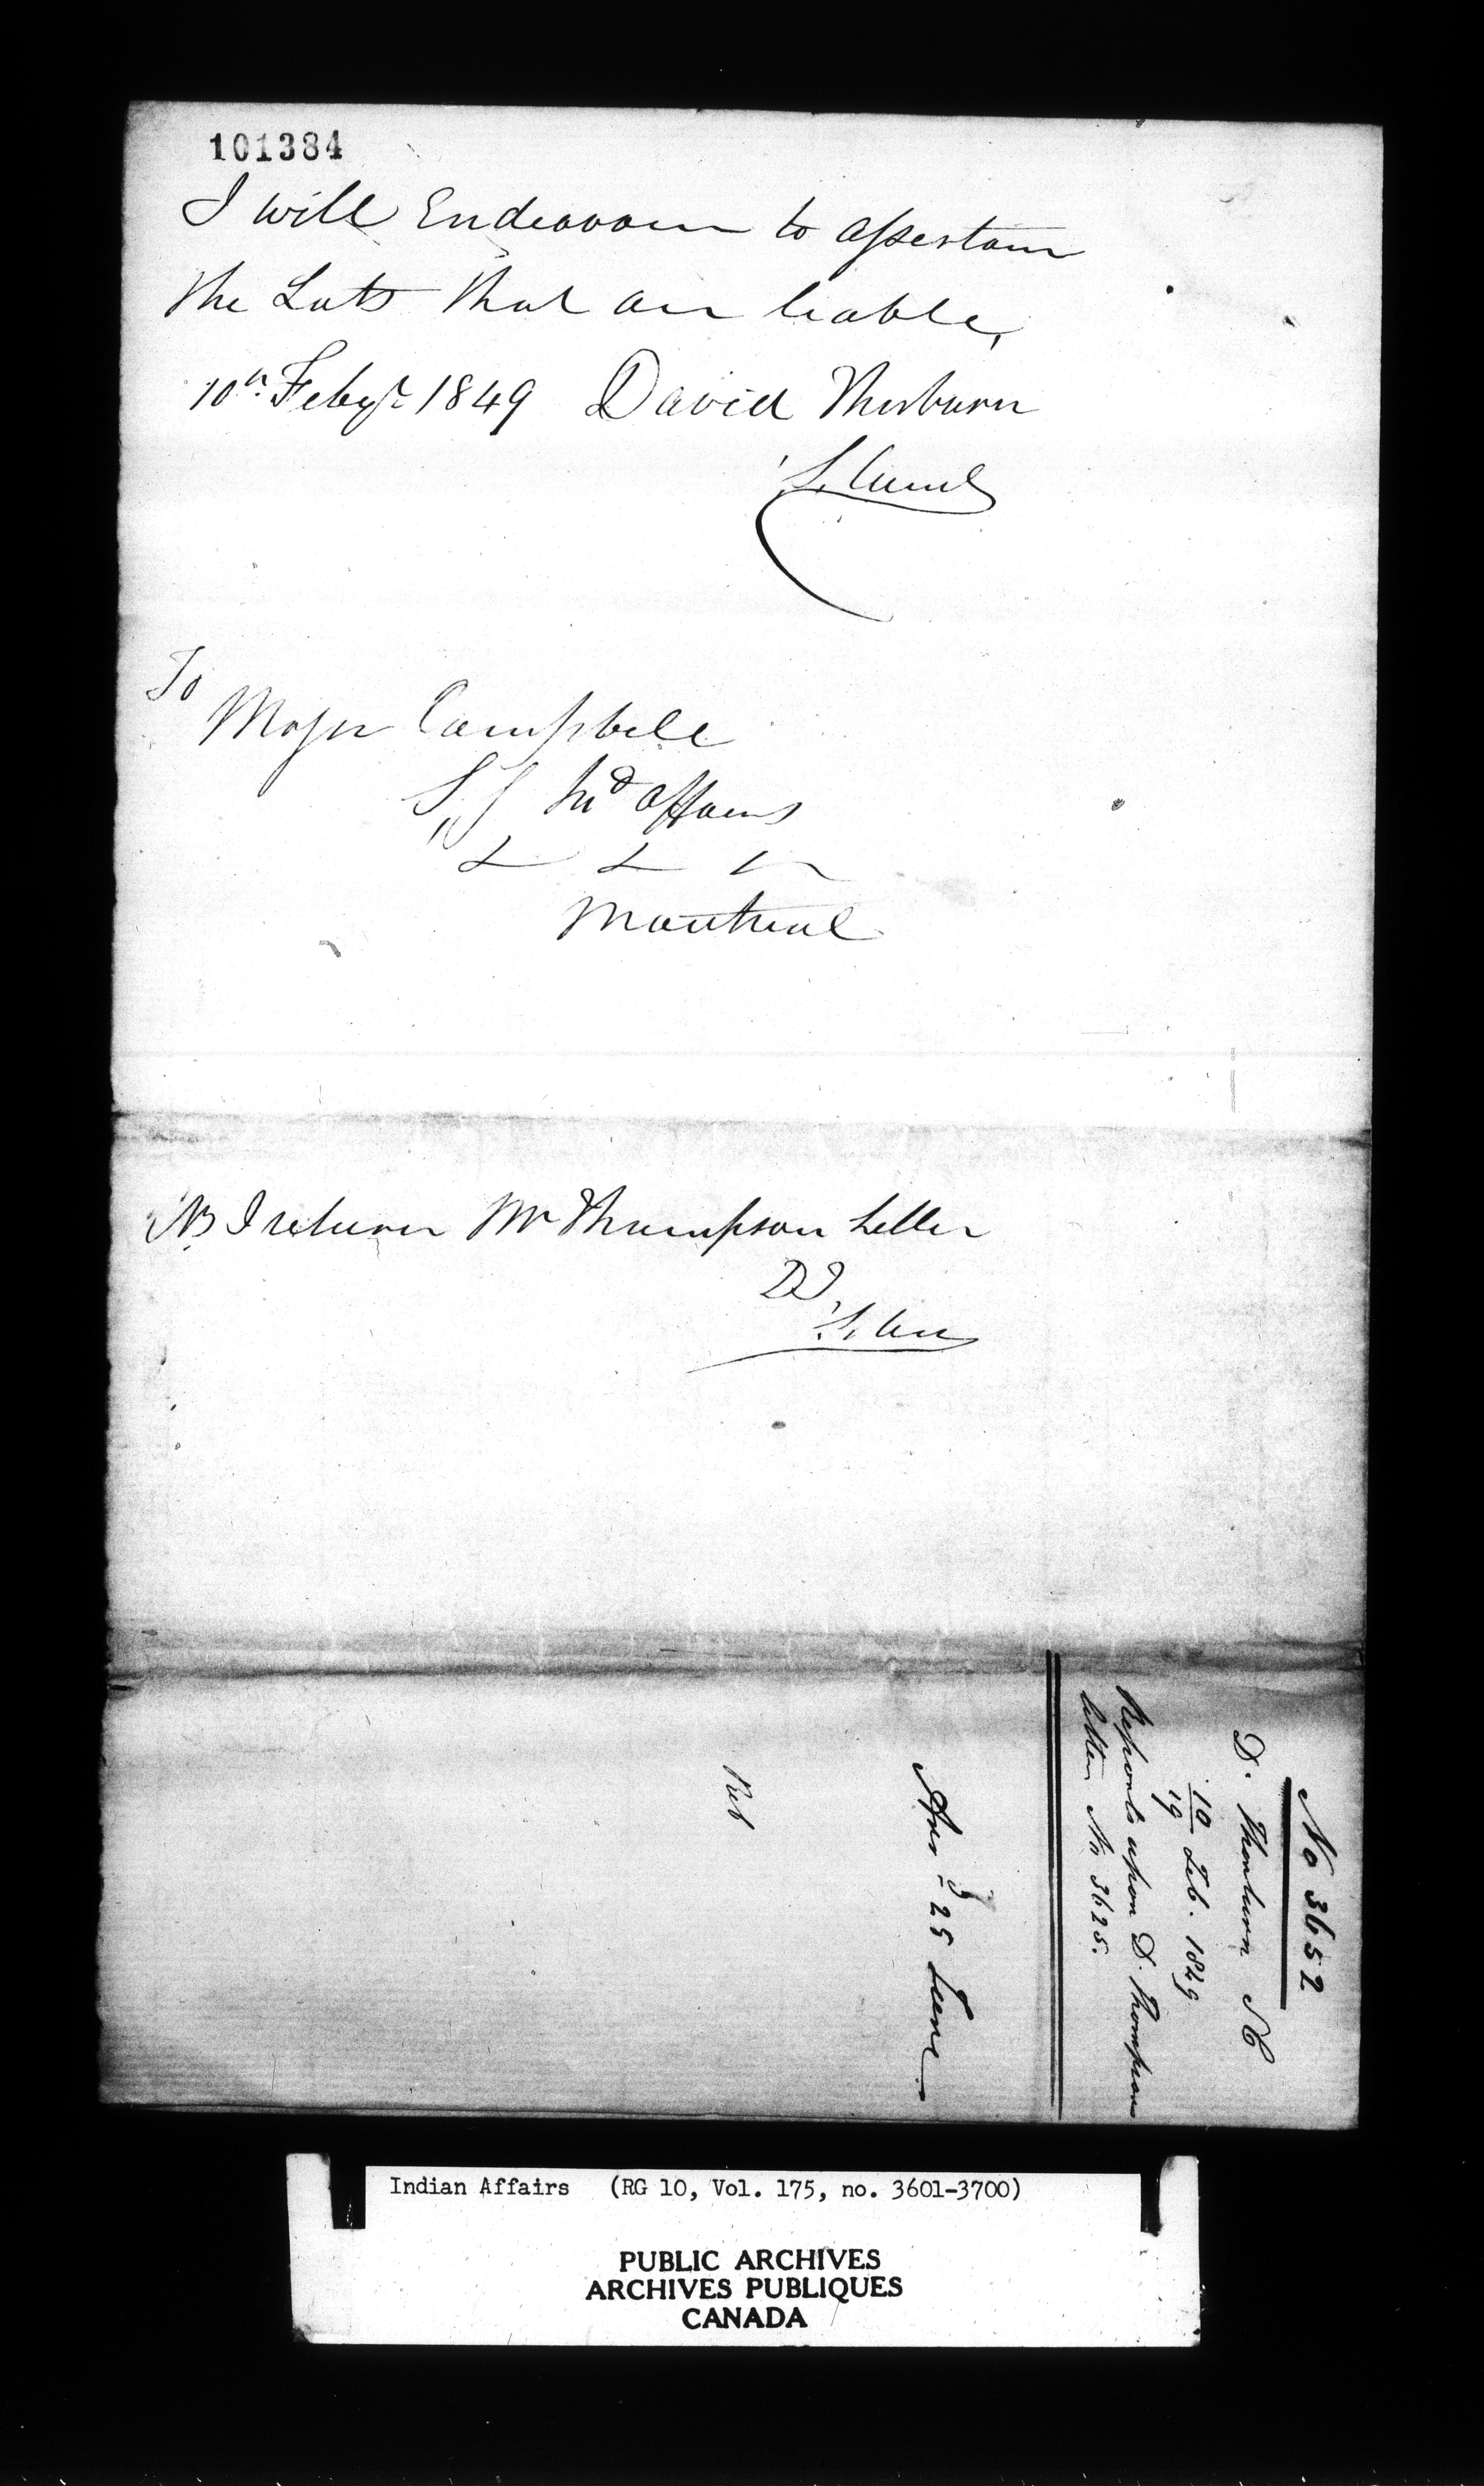 101384
I will Endeavour to assertain
the Lots that are liable,
10th Feby 1849 David Thorburn
S. Comd
To
Major Campbell
S I Ind Affairs
& & &
Montreal
NB I return Mr Thompson Letter
DT
No 3652
D. Thorburn SC
10/19 Feb. 1849
Reports upon D. Thompsons
letter No 3625.
Ansd 25 June
Indian Affairs (RG 10, Vol. 175, no. 3601-3700)
PUBLIC ARCHIVES
ARCHIVES PUBLIQUES
CANADA